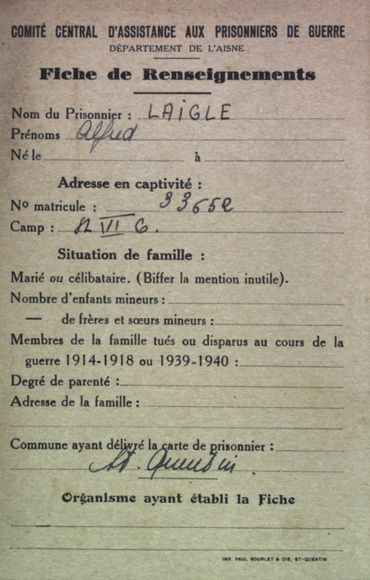 COMITÉ CENTRAL D'ASSISTANCE AUX PRISONNIERS DE GUERRE
DÉPARTEMENT DE L'AISNE
Fiche de Renseignements
Nom du Prisonnier : LAIGLE
Prénoms Alfred
Né le à
Adresse en captivité :
No matricule : 33652
Camp : St VI G.
Situation de famille :
Marié ou célibataire. (Biffer la mention inutile).
Nombre d'enfants mineurs :
— de frères et sœurs mineurs :
Membres de la famille tués ou disparus au cours de la
guerre 1914-1918 ou 1939-1940 :
Degré de parenté :
Adresse de la famille :
Commune ayant délivré la carte de prisonnier :
St. Quentin.
Organisme ayant établi la Fiche
IMP. PAUL BOURLET & CIE, ST-QUENTIN